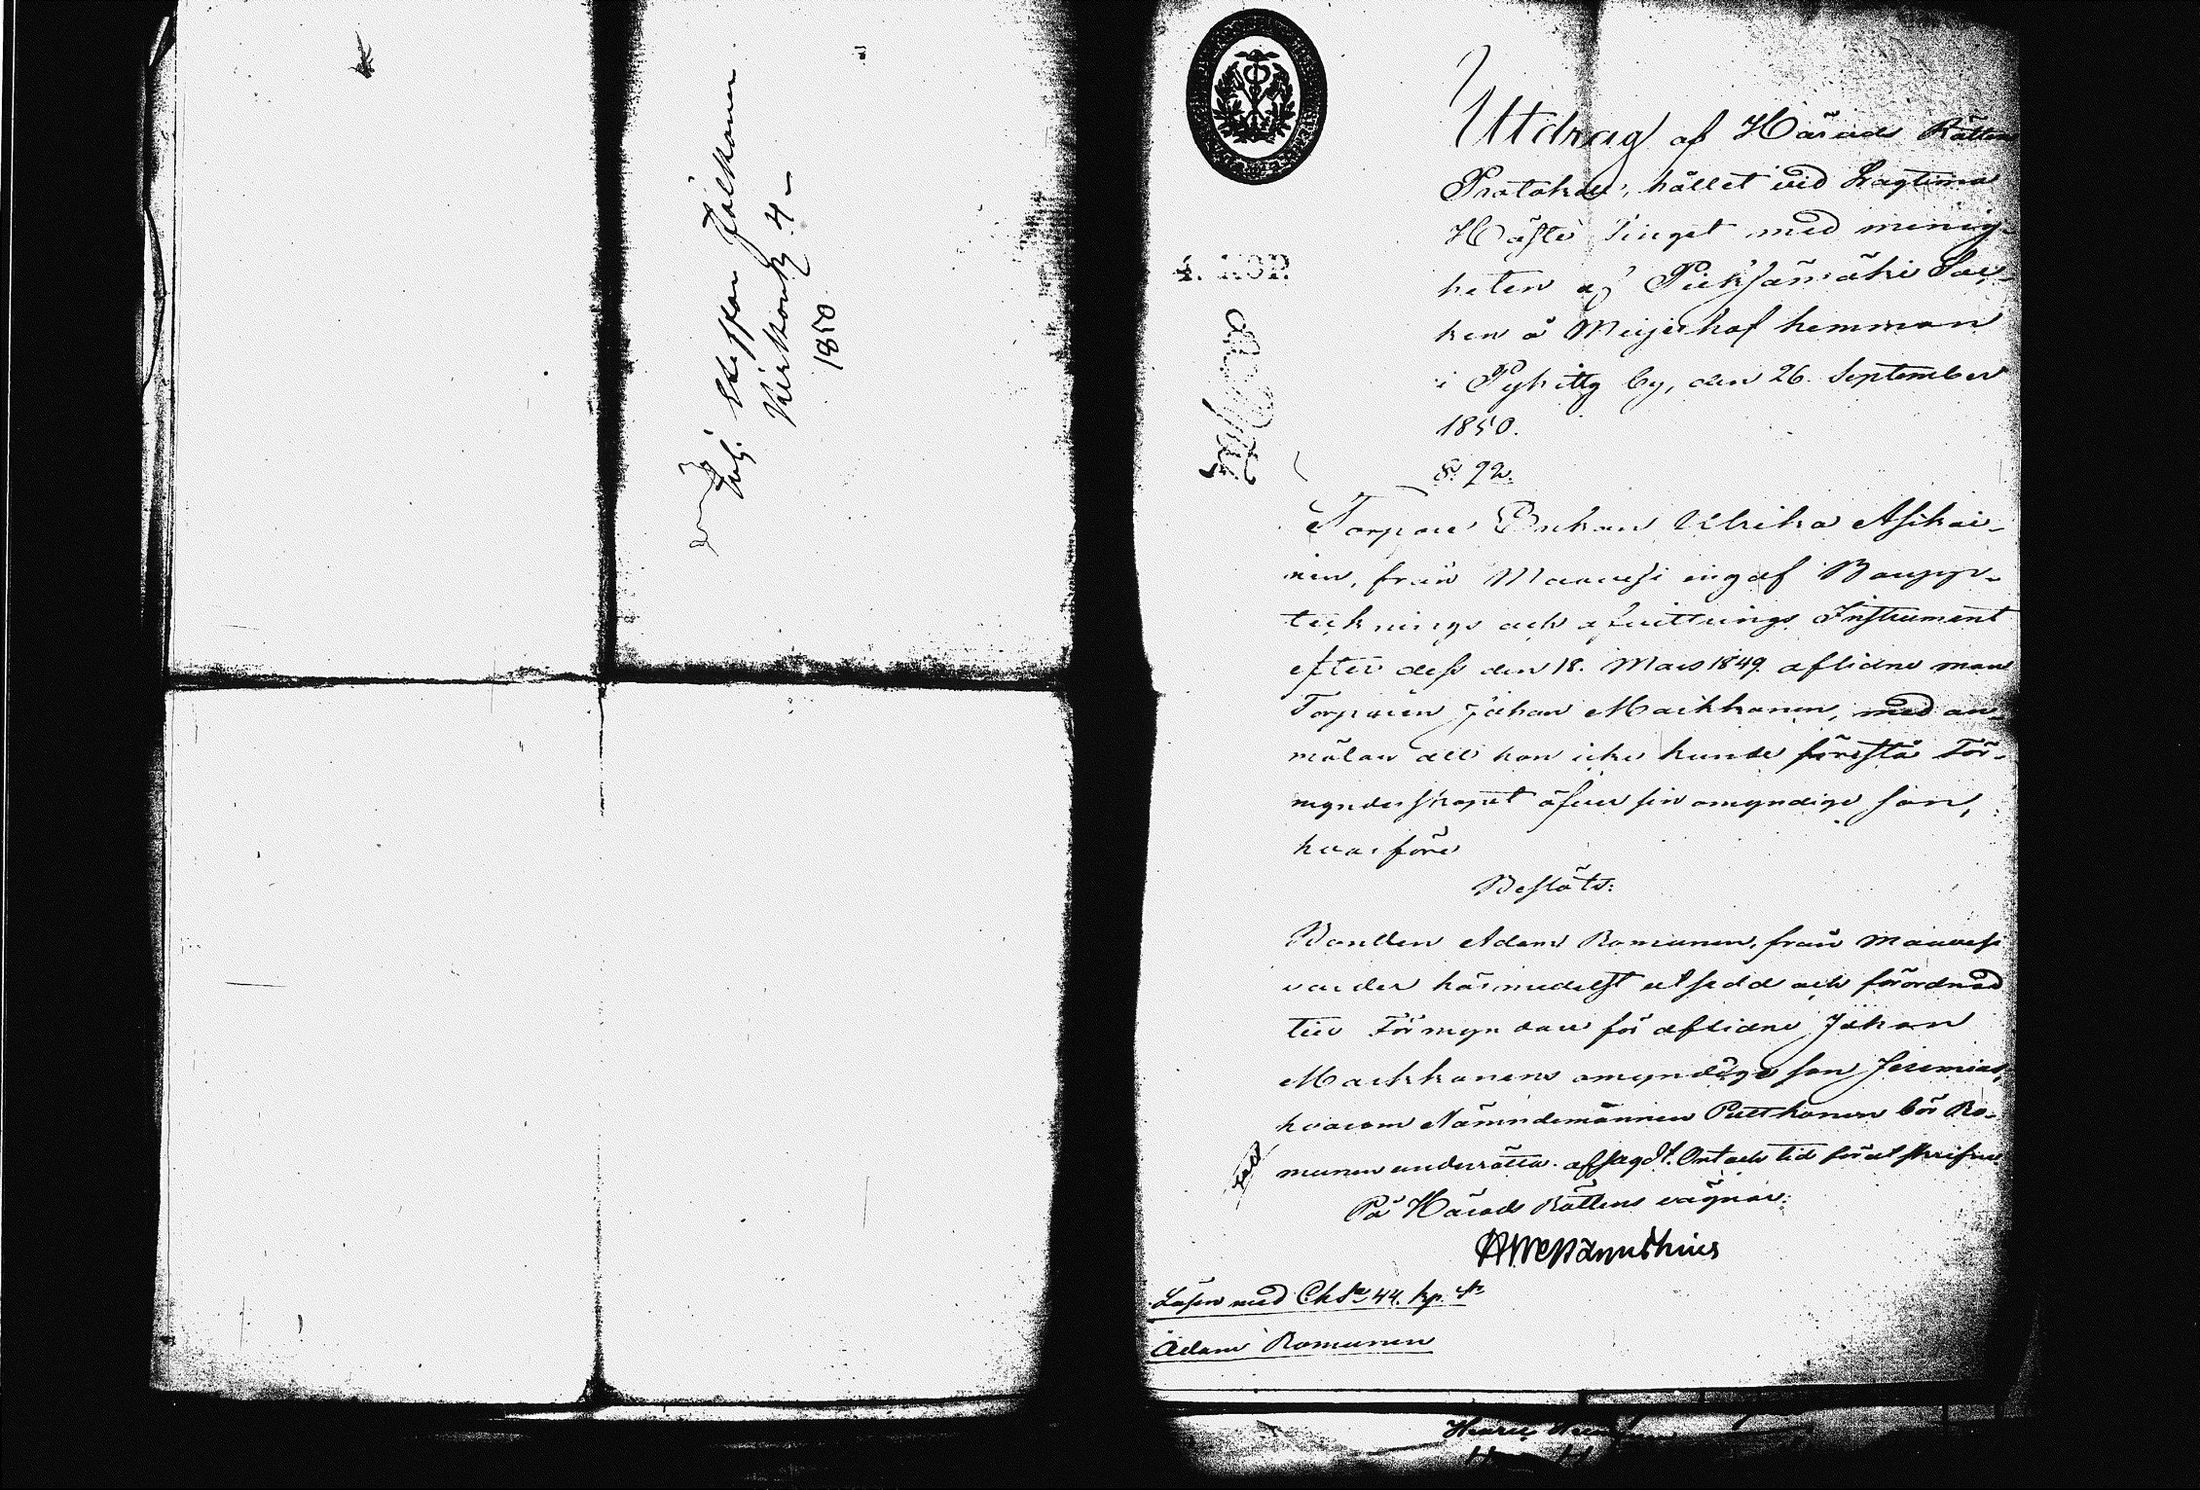 Enl. Staffan Jalkanen
Kirkonk. 4
1850
4. KOP.
Utdrag af Härads Rättens
Protokoll, hållet vid Lagtima
Höste Tinget med menig-
heten af Pieksämäki Soc-
ken å Meijerhof hemman
i Pyhitty by, den 26. September
1850.
§. 92.
Torpare Enkan Ulrika Asikai-
nen, från Maavesi ingaf Bouppr-
tecknings och afvittrings Instrument
efter dess den 18. Mars 1849 aflidne man
Torparen Johan Markkanen, med an-
mälan att hon icke kunde förestå För-
mynderskapet öfver sin omyndige son,
hvarföre
Beslöts:
Bonden Adam Romunen, från Maavesi
varder härmedelst utsedd och förordnad
till Förmyndare för aflidne Johan
Markkanens omyndige son Jeremias,
hvarom Nämndemannen Pulkkanen bör Ro-
munen underrätta. afsagdt. Ort och tid förut skrifne
På Härads Rättens vägnar:
Lösen med Ch. S:a 44. kop. S:r
Adam Romunen